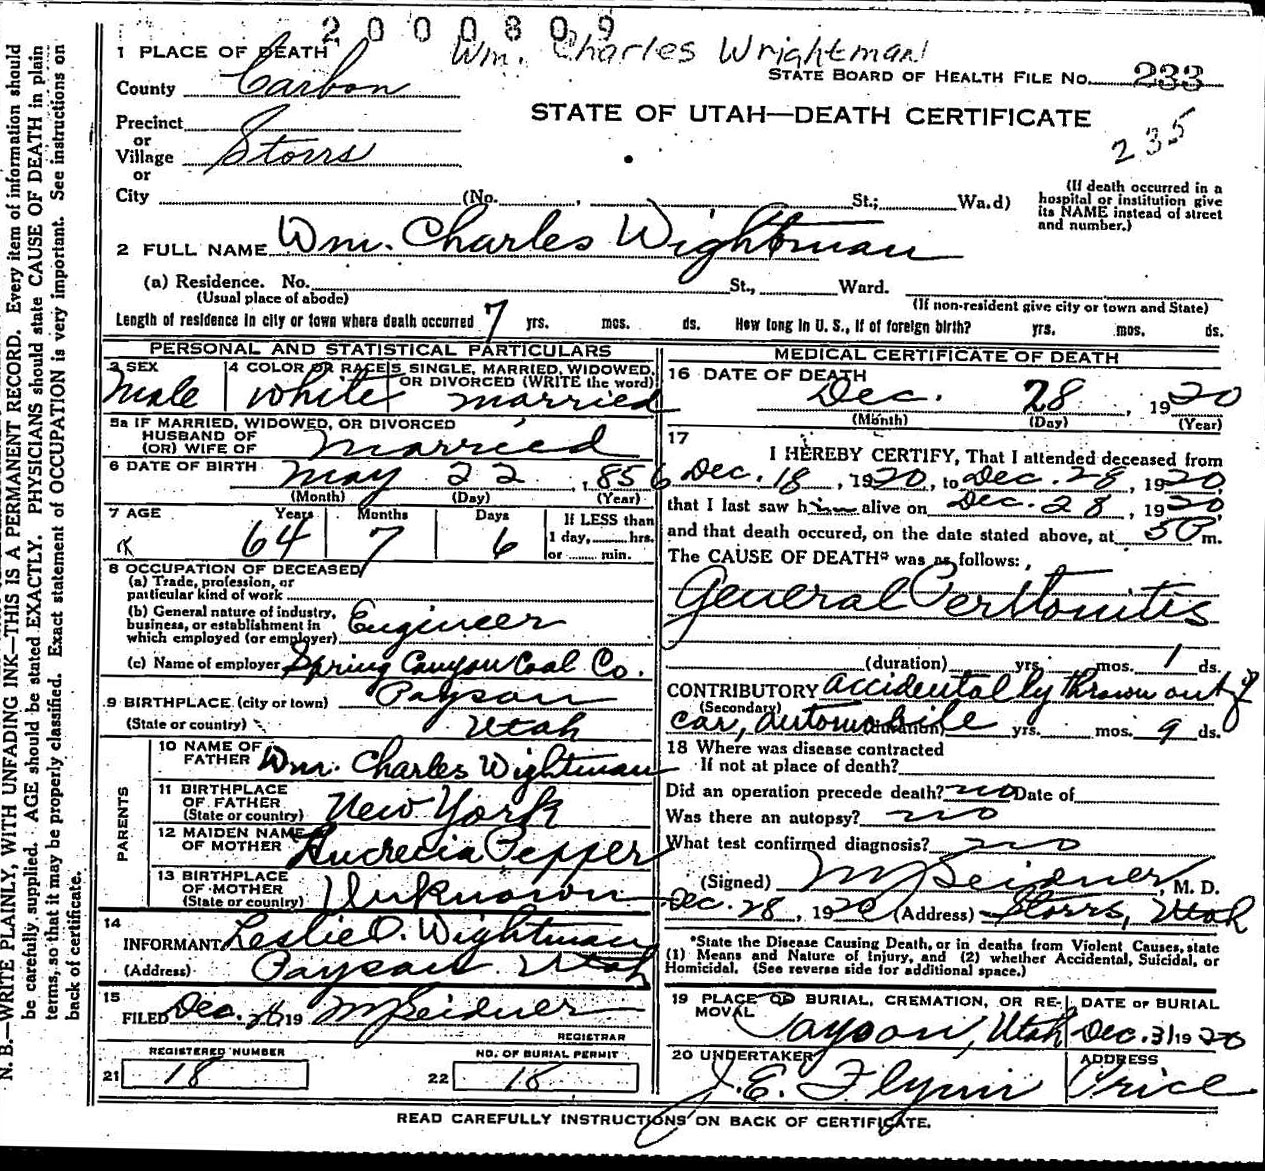 2000809
Wm. Charles Wrightman
1 PLACE OF DEATH
STATE BOARD OF HEALTH FILE No. 233
County Carbon
STATE OF UTAH—DEATH CERTIFICATE
235
Precinct
or
Village Storrs
or
City (No. , St.; Wa.d)
(If death occurred in a
hospital or institution give
its NAME instead of street
and number.)
2 FULL NAME Wm. Charles Wightman
(a) Residence. No. St., Ward.
(Usual place of abode) (If non-resident give city or town and State)
Length of residence in city or town where death occurred 7 yrs. mos. ds. How long in U. S., if of foreign birth? yrs. mos. ds.
PERSONAL AND STATISTICAL PARTICULARS
3 SEX 4 COLOR OR RACE 5 SINGLE, MARRIED, WIDOWED,
OR DIVORCED (WRITE the word)
Male white married
5a IF MARRIED, WIDOWED, OR DIVORCED
HUSBAND OF
(OR) WIFE OF married
6 DATE OF BIRTH May 22, 1856
(Month) (Day) (Year)
7 AGE Years Months Days If LESS than
64 7 6 1 day, hrs.
or min.
8 OCCUPATION OF DECEASED
(a) Trade, profession, or
particular kind of work
(b) General nature of industry,
business, or establishment in
which employed (or employer) Engineer
(c) Name of employer Spring Canyon Coal Co.
9 BIRTHPLACE (city or town) Payson
(State or country) Utah
PARENTS
10 NAME OF
FATHER Wm. Charles Wightman
11 BIRTHPLACE
OF FATHER
(State or country) New York
12 MAIDEN NAME
OF MOTHER Lucrecia Pepper
13 BIRTHPLACE
OF MOTHER
(State or country) Unknown
14
INFORMANT Leslie O. Wightman
(Address) Payson Utah
15
FILED Dec. 28 19 M Seidner
REGISTRAR
REGISTERED NUMBER NO. OF BURIAL PERMIT
21 18 22 18
MEDICAL CERTIFICATE OF DEATH
16 DATE OF DEATH
Dec. 28, 1920
(Month) (Day) (Year)
17
I HEREBY CERTIFY, That I attended deceased from
Dec. 18, 1920, to Dec. 28, 1920,
that I last saw him alive on Dec. 28, 1920,
and that death occured, on the date stated above, at 5 P m.
The CAUSE OF DEATH* was as follows:
General Peritonitis
(duration) yrs. mos. 1 ds.
CONTRIBUTORY accidentally thrown out of
(Secondary)
car, automobile (duration) yrs. mos. 9 ds.
18 Where was disease contracted
If not at place of death?
Did an operation precede death? no Date of
Was there an autopsy? no
What test confirmed diagnosis? no
(Signed) M Seidner, M. D.
Dec. 28, 1920 (Address) Storrs, Utah
*State the Disease Causing Death, or in deaths from Violent Causes, state
(1) Means and Nature of Injury, and (2) whether Accidental, Suicidal, or
Homicidal. (See reverse side for additional space.)
19 PLACE OF BURIAL, CREMATION, OR RE- DATE OF BURIAL
MOVAL
Payson, Utah Dec. 31 1920
20 UNDERTAKER ADDRESS
J. E. Flynn Price
READ CAREFULLY INSTRUCTIONS ON BACK OF CERTIFICATE.
N. B.—WRITE PLAINLY, WITH UNFADING INK—THIS IS A PERMANENT RECORD. Every item of information should
be carefully supplied. AGE should be stated EXACTLY. PHYSICIANS should state CAUSE OF DEATH in plain
terms, so that it may be properly classified. Exact statement of OCCUPATION is very important. See instructions on
back of certificate.